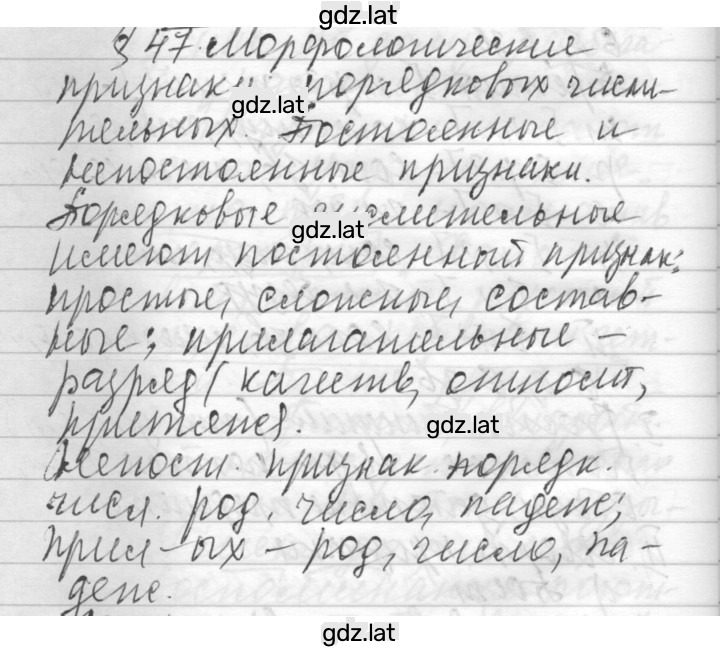 gdz.lat
§ 47. Морфологические
признаки порядковых числи-
gdz.lat
тельных. Постоянные и
непостоянные признаки.
Порядковые числительные
gdz.lat
имеют постоянный признак:
простые, сложные, состав-
ные; прилагательные –
разряд (качеств, относит,
притяж).
gdz.lat
Непост. признак порядк.
числ. род, число, падеж;
прил-ых – род, число, па-
деж.
gdz.lat